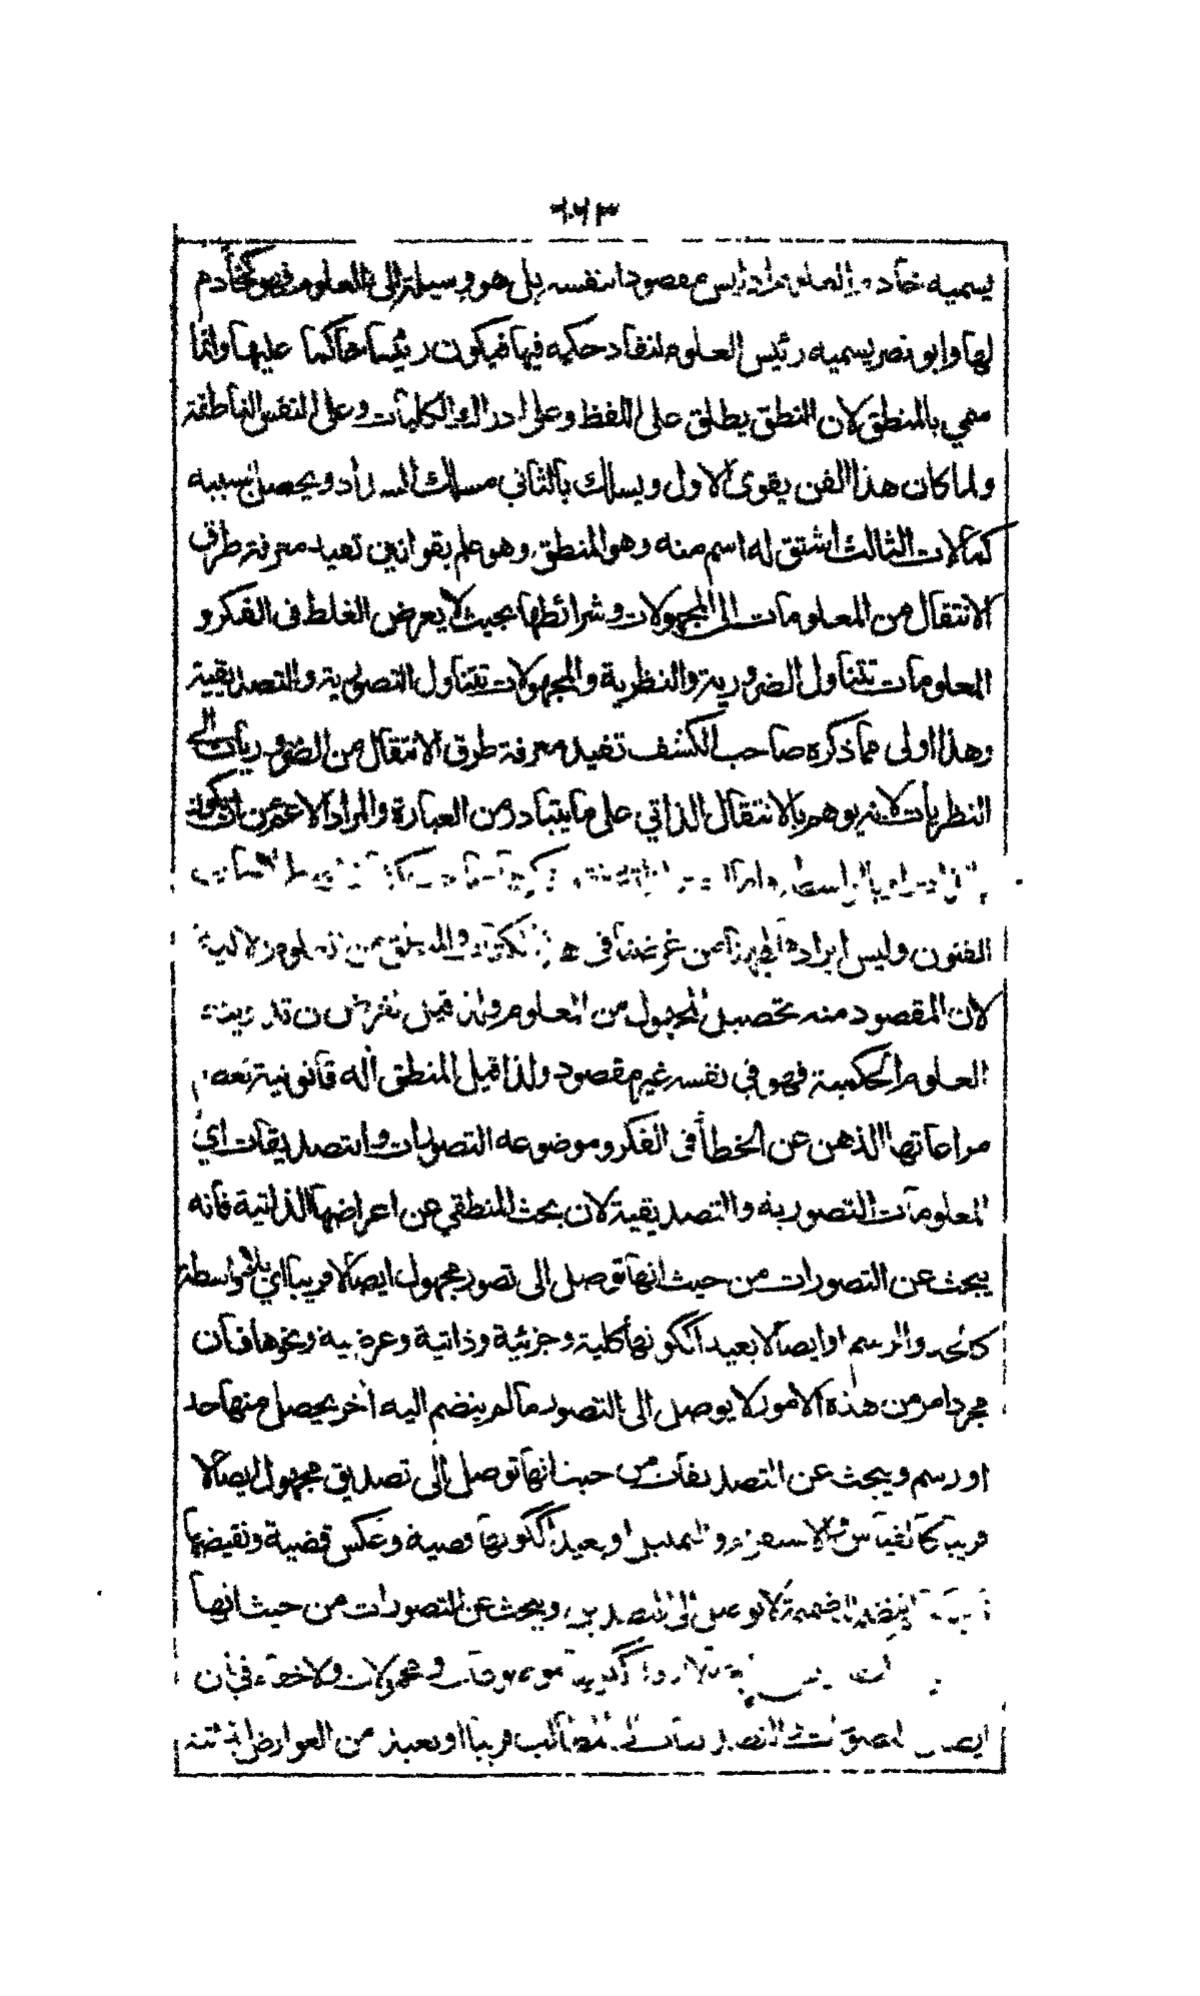 يسميه خادم العلوم اذ ليس مقصودا بنفسه بل هو وسيلة الى العلوم فهو كخادم
لها وابو نصر يسميه رئيس العلوم لنفاذ حكمه فيها فيكون رئيسا حاكما عليها وانما
سمي بالمنطق لان النطق يطلق على اللفظ وعلى ادراك الكليات وعلى النفس الناطقة
ولما كان هذا الفن يقوى الاول ويسلك بالثاني مسلك السداد ويحصل بسببه
كمالات الثالث اشتق له اسم منه وهو المنطق وهو علم بقوانين تفيد معرفة طرق
الانتقال من المعلومات الى المجهولات وشرائطها بحيث لا يعرض الغلط فى الفكر و
المعلومات تتناول الضرورية والنظرية والمجهولات تتناول التصورية والتصديقية
وهذا اولى مما ذكره صاحب الكشف تفيد معرفة طرق الانتقال من الضروريات الى
النظريات لانه يوهم بالانتقال الذاتي على ما يتبادر من العبارة والمراد الاعم من ان يكون
بالواسطة
الفنون وليس ايراد من غرضنا فى والمنطق من العلوم الالية
لان المقصود منه تحصيل المجهول من المعلوم ولذا قيل الغرض من تدوينه
العلوم الحكمية فهو في نفسه غير مقصود ولذا قيل المنطق اٰلة قانونية تعصم
مراعاتها الذهن عن الخطأ فى الفكر وموضوعه التصورات والتصديقات اي
المعلومات التصورية والتصديقية لان بحث المنطقي عن اعراضها الذاتية فانه
يبحث عن التصورات من حيث انها توصل الى تصور مجهول ايصالا قريبا اي بلا واسطة
كالحد والرسم او ايصالا بعيدا لكونها كلية وجزئية وذاتية وعرضية ونحوها فان
مجرد امر من هذه الامور لا يوصل الى التصور ما لم ينضم اليه اٰخر يحصل منهما حد
او رسم ويبحث عن التصديقات من حيث انها توصل الى تصديق مجهول ايصالا
قريبا كالقياس والاستقراء والتمثيل او بعيدا لكونها قضية وعكس قضية ونقيضها
ضميمة لا توصل الى التصديق ويبحث عن التصورات من حيث انها
موضوعات ومحمولات ولا خفاء في ان
ايصال التصورات والتصديقات الى المطالب قريبا او بعيد من العوارض الذاتية